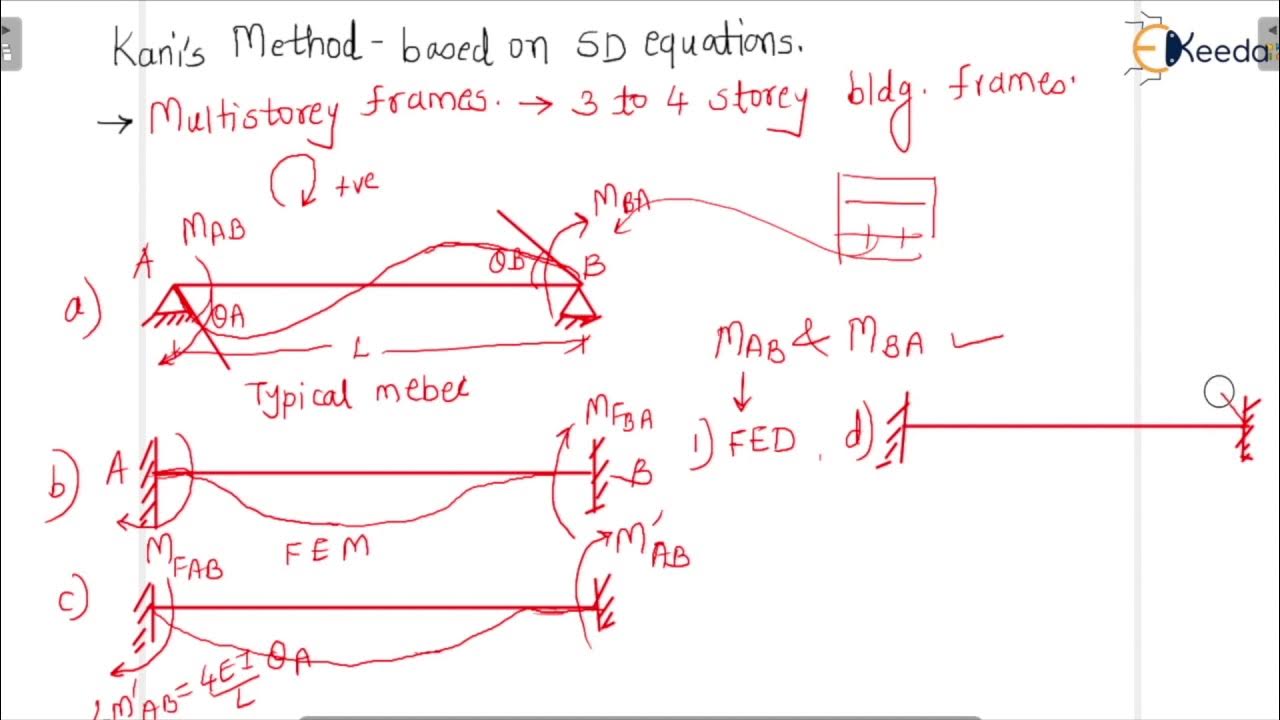 Kani's Method - based on SD equations.
EKeeda
→ Multistorey frames. → 3 to 4 storey bldg. frames.
+ve
MAB
MBA
A
θB
B
a)
θA
L
Typical mebel
MAB & MBA ✓
MFBA
1) FED.
d)
b)
A
B
FEM
MFAB
M'AB
c)
2M'AB = 4EI/L θA